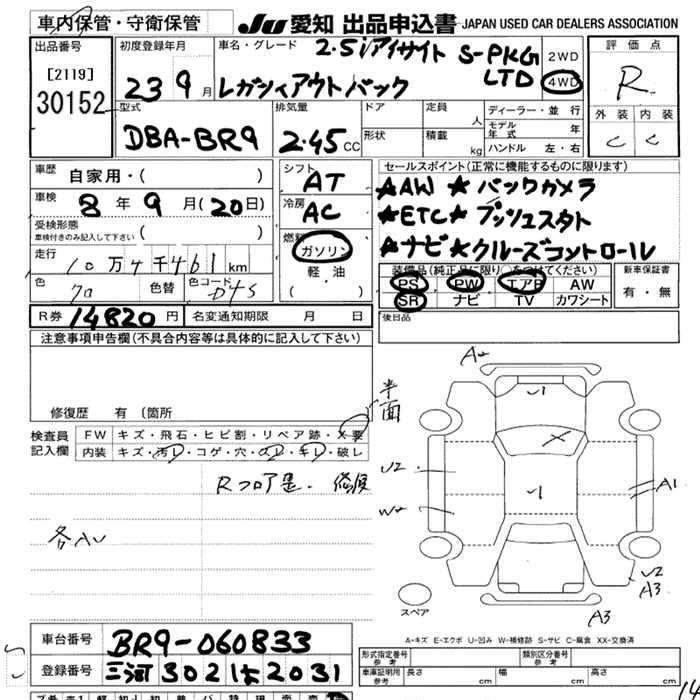 車内保管・守衛保管
JU 愛知 出品申込書 JAPAN USED CAR DEALERS ASSOCIATION
出品番号
[2119]
30152
初度登録年月
23 9月
車名・グレード
2.5iアイサイト S-PKG
レガシィアウトバック LTD
2WD
4WD
評価点
R
外装 内装
C C
型式
DBA-BR9
排気量
2.45CC
ドア
形状
定員 人
積載 kg
ディーラー・並行
モデル年式 年
ハンドル 左・右
車歴
自家用・( )
車検 8年9月(20日)
受検形態
車検付きのみ記入して下さい ( )
走行 10万4千461km
色 色替 色コード D4S
R券 14820円
名変通知期限 月 日
シフト
AT
冷房
AC
燃料
ガソリン
軽・油
( )
セールスポイント(正常に機能するものに限ります)
★AW ★バックカメラ
★ETC★プッシュスタト
★ナビ★クルーズコントロール
装備品(純正品に限り○をつけてください)
PS PW エアB AW
SR ナビ TV カワシート
新車保証書
有・無
後日品
注意事項申告欄(不具合内容等は具体的に記入して下さい)
修復歴 有 (箇所
検査員
記入欄
FW キズ・飛石・ヒビ割・リペア跡・X要
内装 キズ・汚レ・コゲ・穴・・キレ・破レ
Rフロア
各AU
半面
A2
U1
U2
W2
U1
A1
U2
A3
A3
スペア
A-キズ E-エクボ U-凹み W-補修跡 S-サビ C-腐食 XX-交換済
車台番号 BR9-060833
登録番号 三河302 2031
形式指定番号
参考
類別区分番号
参考
車庫証明用
参考
長さ cm 幅 cm 高さ cm